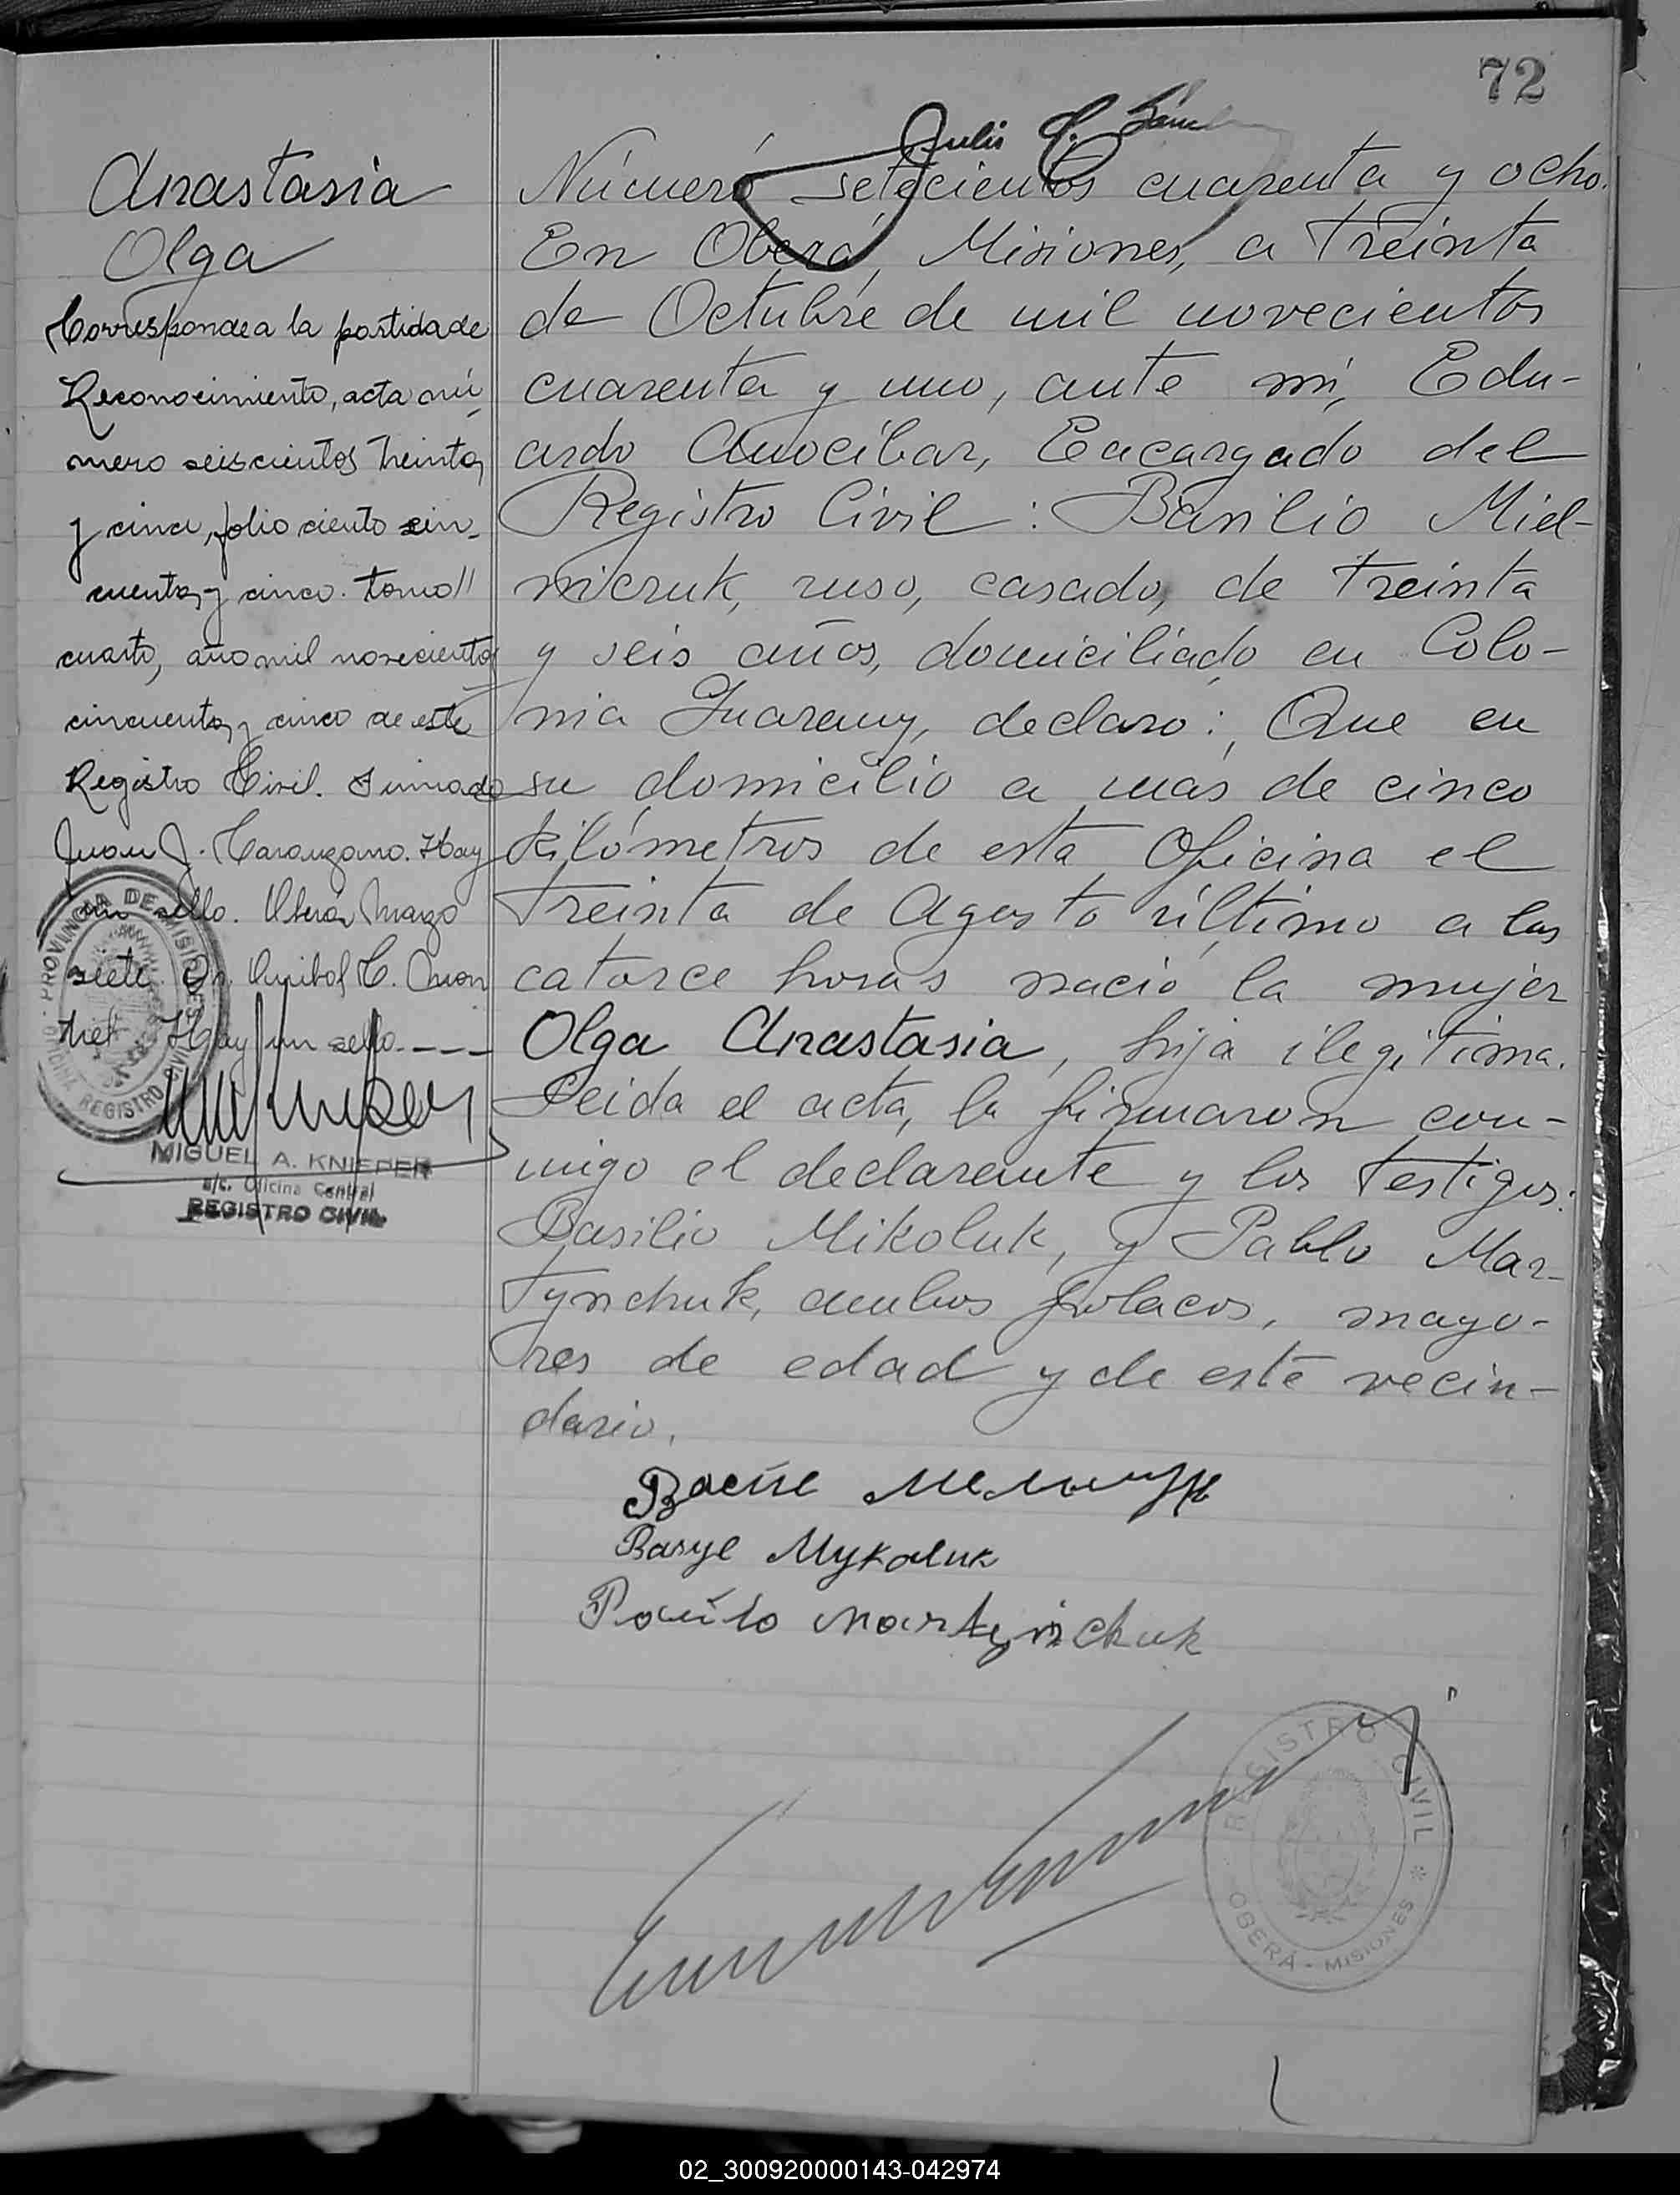 72
Julio
Anastasia
Olga
Corresponde a la partida de
Reconocimiento, acta nú-
mero seiscientos treinta
y cinco, folio ciento cin-
cuenta y cinco. tomo
cuarto, año mil novecientos
cincuenta y cinco de este
Registro Civil. Firmado
Juan J. Hay
un sello. Oberá, Marzo
siete. Dr. Anibal C.
Hay un sello.---
PROVINCIA DE MISIONES
OFICINA REGISTRO CIVIL
MIGUEL A. KNIEPER
a/c. Oficina Central
REGISTRO CIVIL
Número setecientos cuarenta y ocho.
En Oberá, Misiones, a treinta
de Octubre de mil novecientos
cuarenta y uno, ante mí, Edu-
ardo Anocíbar, Encargado del
Registro Civil: Basilio Miel-
niczuk, ruso, casado, de treinta
y seis años, domiciliado en Colo-
nia Guarany, declaro: Que en
su domicilio a más de cinco
kilómetros de esta Oficina el
treinta de Agosto último a las
catorce horas nació la mujer
Olga Anastasia, hija ilegítima.
Leida el acta, la firmaron con-
migo el declarante y los testigos:
Basilio Mikoluk, y Pablo Mar-
tynchuk, ambos polacos, mayo-
res de edad y de este vecin-
dario.
Basyl Mykoluk
Pawlo Martynchuk
REGISTRO CIVIL
OBERÁ - MISIONES
02_300920000143-042974